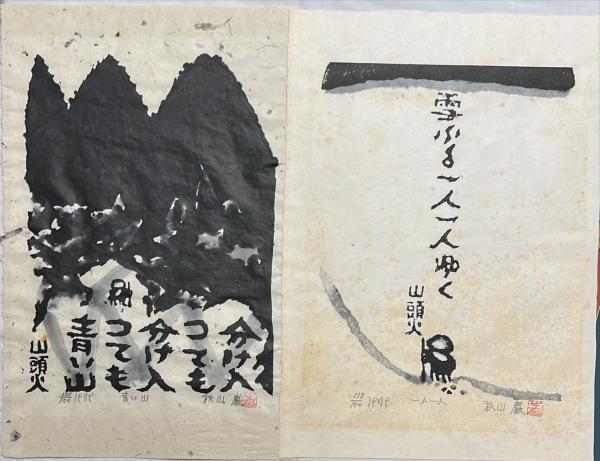 分け入
つても
分け入
つても
青い山
山頭火
1979 青い山 秋山 巌
雪ふる一人一人ゆく
山頭火
1979 一人一人 秋山 巌